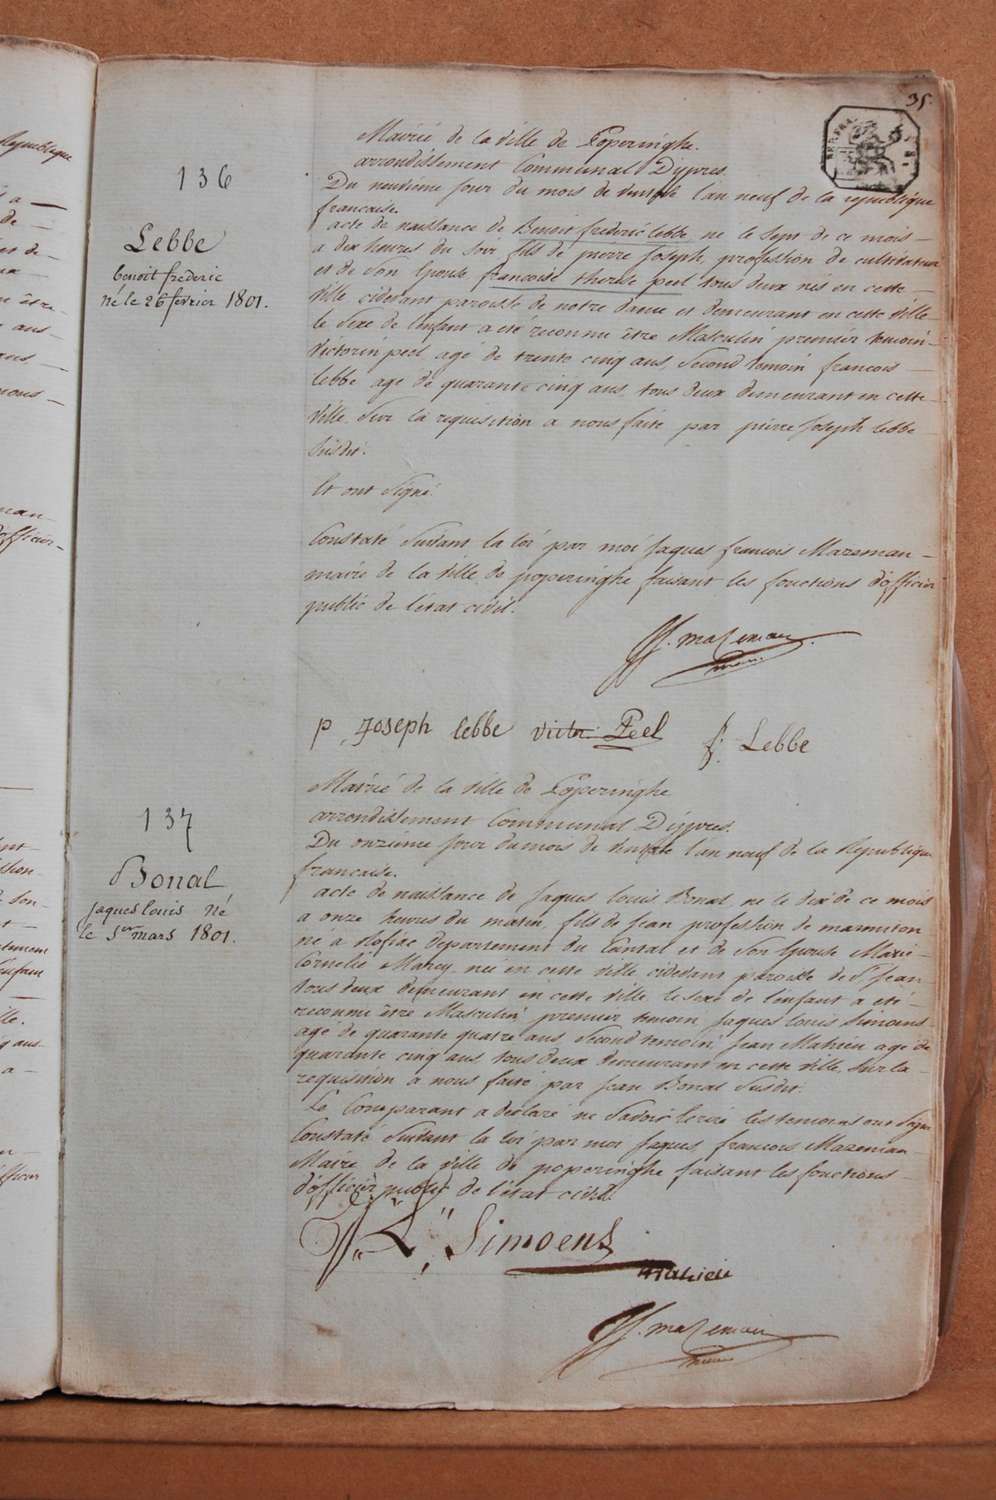 35
136
Lebbe
benoit frederic
né le 26 février 1801.
Mairié de la ville de Poperinghe.
arrondissement Communal D'ypres.
Du neuvième jour du mois de ventose l'an neuf de la republique
francaise.
acte de naissance de Benoit frederic lebbe né le sept de ce mois
a dix heures du soir fils de pierre Joseph, profession de cultivateur
et de son Epouse francoise therese peel tous deux nés en cette
ville cidevant paroisse de notre dame et demeurant en cette ville
le Sexe de l'enfant a été reconnu être Masculin premier temoin
Victorin peel agé de trente cinq ans, Second temoin francois
lebbe agé de quarante cinq ans, tous deux demeurant en cette
ville. Sur la requisition a nous faite par pierre Joseph lebbe
Susdit.
Et ont Signé.
Constaté Suivant la loi par moi Jaques francois Mazeman
maire de la ville de poperinghe faisant les fonctions d'officier
public de l'etat civil.
JJ. mazeman
maire
p Joseph lebbe victor Peel f: Lebbe
137
Bonal
Jaques louis Né
le 1er mars 1801.
Mairié de la ville de Poperinghe
arrondissement Communal D'ypres.
Du onzième jour du mois de Ventose l'an neuf de la Republique
francaise.
acte de naissance de Jaques louis Bonal né le dix de ce mois
a onze heures du matin, fils de Jean profession de
né a departement du Cantal et de Son Epouse Marie
Cornelie Marcy née en cette ville cidevant paroisse de St Jean
tous deux demeurant en cette ville le sexe de l'enfant a été
reconnu être Masculin premier temoin Jaques louis Simoens
agé de quarante quatre ans Second temoin Jean Mahieu agé de
quarante cinq ans tous deux demeurant en cette ville, Sur la
requisition a nous faite par Jean Bonal Susdit.
Le Comparant a declaré ne Savoir Ecrire les temoins ont Signé
Constaté Suivant la loi par moi Jaques francois Mazeman
Maire de la ville de poperinghe faisant les fonctions
d'officier public de l'état civil.
J. L. Simoens
Mahieu
JJ. mazeman
maire